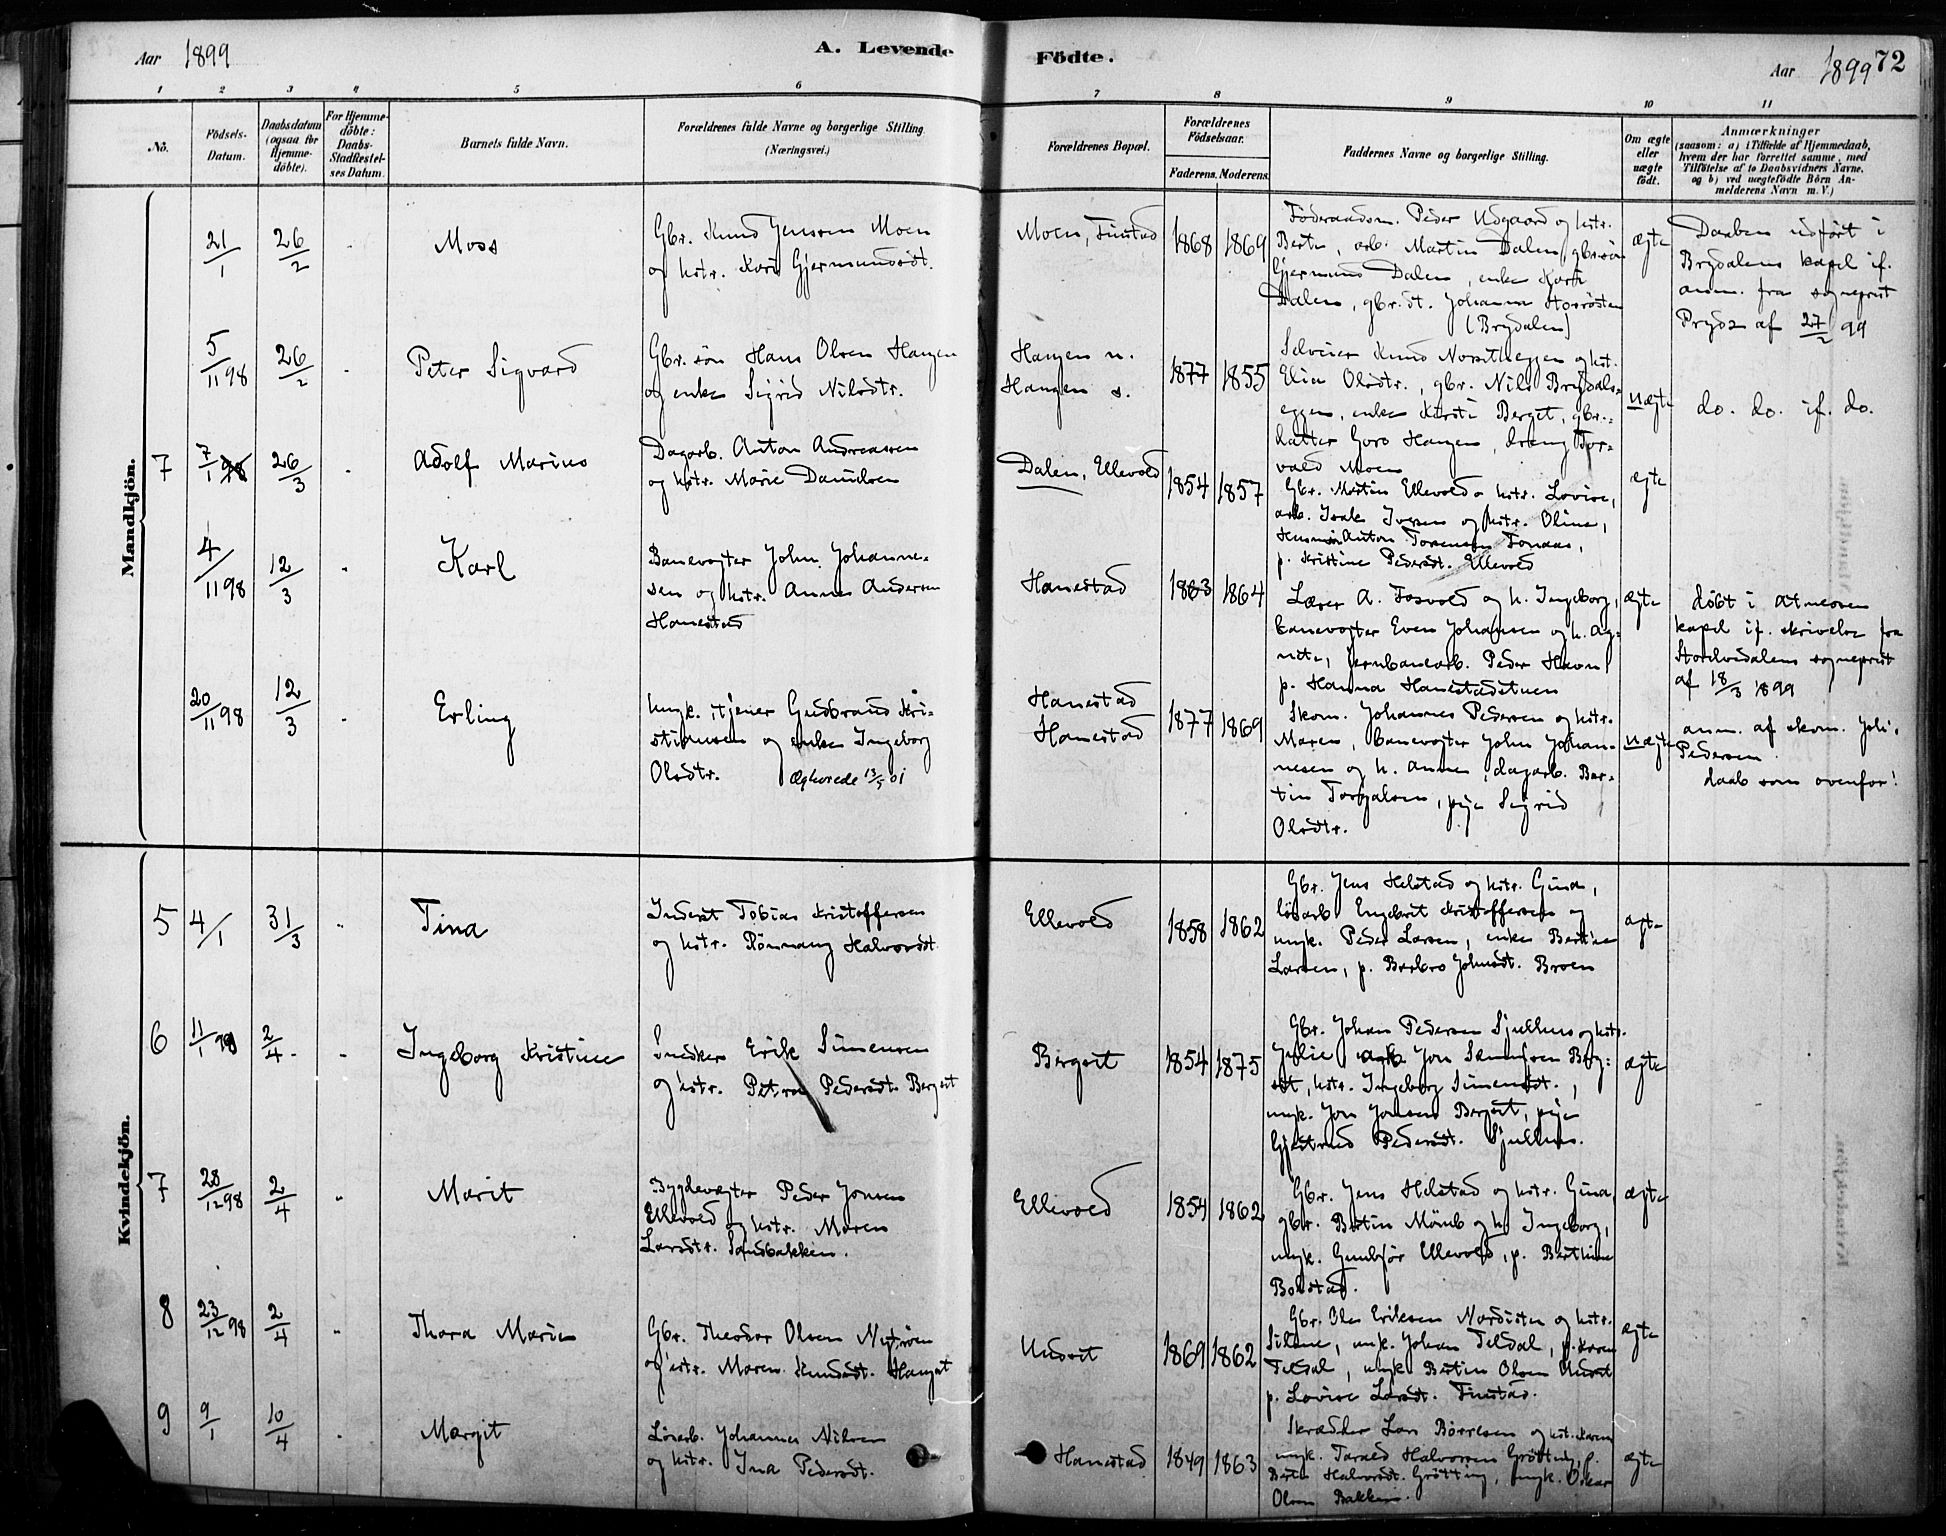 Aar 1899
A. Levende Födte.
Aar 1899 72
1 2 3 4 5 6 7 8 9 10 11
No.
Födsels-
Datum.
Daabsdatum
(ogsaa for
Hjemme-
döbte).
For Hjemme-
döbte:
Daabs-
Stadfestel-
ses Datum.
Barnets fulde Navn.
Forældrenes fulde Navne og borgerlige Stilling
(Næringsvei.)
Forældrenes Bopæl.
Forældrenes
Födselsaar.
Faderens. Moderens.
Faddernes Navne og borgerlige Stilling.
Om ægte
eller
uægte
födt.
Anmærkninger
(saasom: a) i Tilfælde af Hjemmedaab,
hvem der har forrettet samme, med
Tilföielse af to Daabsvidners Navne,
og b) ved uægtefödte Börn An-
melderens Navn m. V.)
Mandkjön.
21/1 26/2 Moss
Gbr. Knud Jensen Moen
og hstr. Kari Gjermundsdt.
Moen, Finstad 1868 1869
Föderaadsm. Peder Udgaard og hstr.
Berte, arb. Martin Dalen, gbr.sön
Gjermund Dalen, enke Kari
Dalen, gbr.dt. Johanna
(Brydalen)
ægte
Daaben udfört i
Brydalens kapel if.
anm. fra sogneprest
Prydz af 27/2 99
5/11 98 26/2 Peter Sigvard
Gbr. sön Hans Olsen Hangen
og enke Sigrid Nilsdtr.
Hangen n.
Hangen s.
1877 1855
Selveier Knud og hst.
Elin Olsdtr., gbr. Nils Brydals-
eggen, enke Kirsti Berget, gbr.-
datter Goro Hangen, dreng Tor-
vald Moen
uægte
do. do. if. do.
7 7/1 26/3 Adolf Marius
Dagarb. Anton Andreassen
og hstr. Marie Danielsen
Dalen, Ellevold 1854 1857
Gbr. Martin Ellevold o hstr. Lovise,
arb. Isak Iversen og hstr. Oline,
Anton Torensen
p. Kristine Pedersdt. Ellevold
ægte
4/11 98 12/3 Karl
Banevogter John Johanne-
sen og hstr. Anne Andersen
Hanestad
Hanestad 1863 1864
Lærer A. Fosvold og h. Ingeborg,
banevogter Even Johansen og h. Ag-
nete, jernbanearb. Peder Havn
p. Hanna Hanestadstuen
ægte
döbt i Atneosen
kapel if. skrivelse fra
Storelvedalens sogneprest
af 18/3 1899
20/11 98 12/3 Erling
Ungk. tjener Gudbrand Kri-
stiansen og enke Ingeborg
Olsdtr. Ægteviede 13/5 01
Hanestad
Hanestad
1877 1869
Skom. Johannes Pedersen og hstr.
Maren, banevogter John Johan-
nesen og h. Anne, dagarb. Ber-
tin Torgalsen, pige Sigrid
Olsdtr.
uægte
anm. af skom. Joh.
Pedersen.
daab som ovenfor!
Kvindekjön.
5 4/1 31/3 Tina
Inderst Tobias Kristoffersen
og hstr. Rönnaug Halvorsdt.
Ellevold 1858 1862
Gbr. Jens Helstad og hstr. Gina,
lösarb Engebret Kristoffersen og
ungk. Peder Larsen, enke Bertine
Larsen, p. Barbro Johnsdt. Broen
ægte
6 11/1 2/4 Ingeborg Kristine
Snedker Erik Simensen
og hstr. Petra Pedersdt. Bergset
Bergset 1854 1875
Gbr. Johan Pedersen Sjulhus og hstr.
Julie, arb. Jon Berg-
set, hstr. Ingeborg Simensdt.,
ungk. Jon Jonsen Bergset, pige
Gjertrud Pedersdt. Sjulhus.
ægte
7 28/12 98 2/4 Marit
Bygdevægter Peder Jonsen
Ellevold og hstr. Maren
Larsdtr. Sandbakken.
Ellevold 1854 1862
Gbr. Jens Helstad og hstr. Gina,
gbr. Bertin Mömb og h. Ingeborg,
ungk. Gunbjör Ellevold, p. Berthine
Bolstad.
ægte
8 23/12 98 2/4 Thora Marie
Gbr. Theodor Olsen Nytröen
og hstr. Maren Knudsdt. Hanget
Undset 1869 1862
Gbr. Ole Eriksen Nordisten og hstr.
Siline, unk. Johan Feldal, p. Karen
Feldal, ungk. Bertin Olsen Undset
p. Lovise Larsdt. Finstad.
ægte
9 9/1 10/4 Margit
Lösarb. Johannes Nilsen
og hstr. Ina Pedersdt.
Hanestad 1849 1863
Skrædder Lars Börresen og hst. Karen
ungk. Tarald Halvorsen Grötting, p.
Berte Halvorsdt. Grötting, ungk. Oskar
Olsen Bakken.
ægte